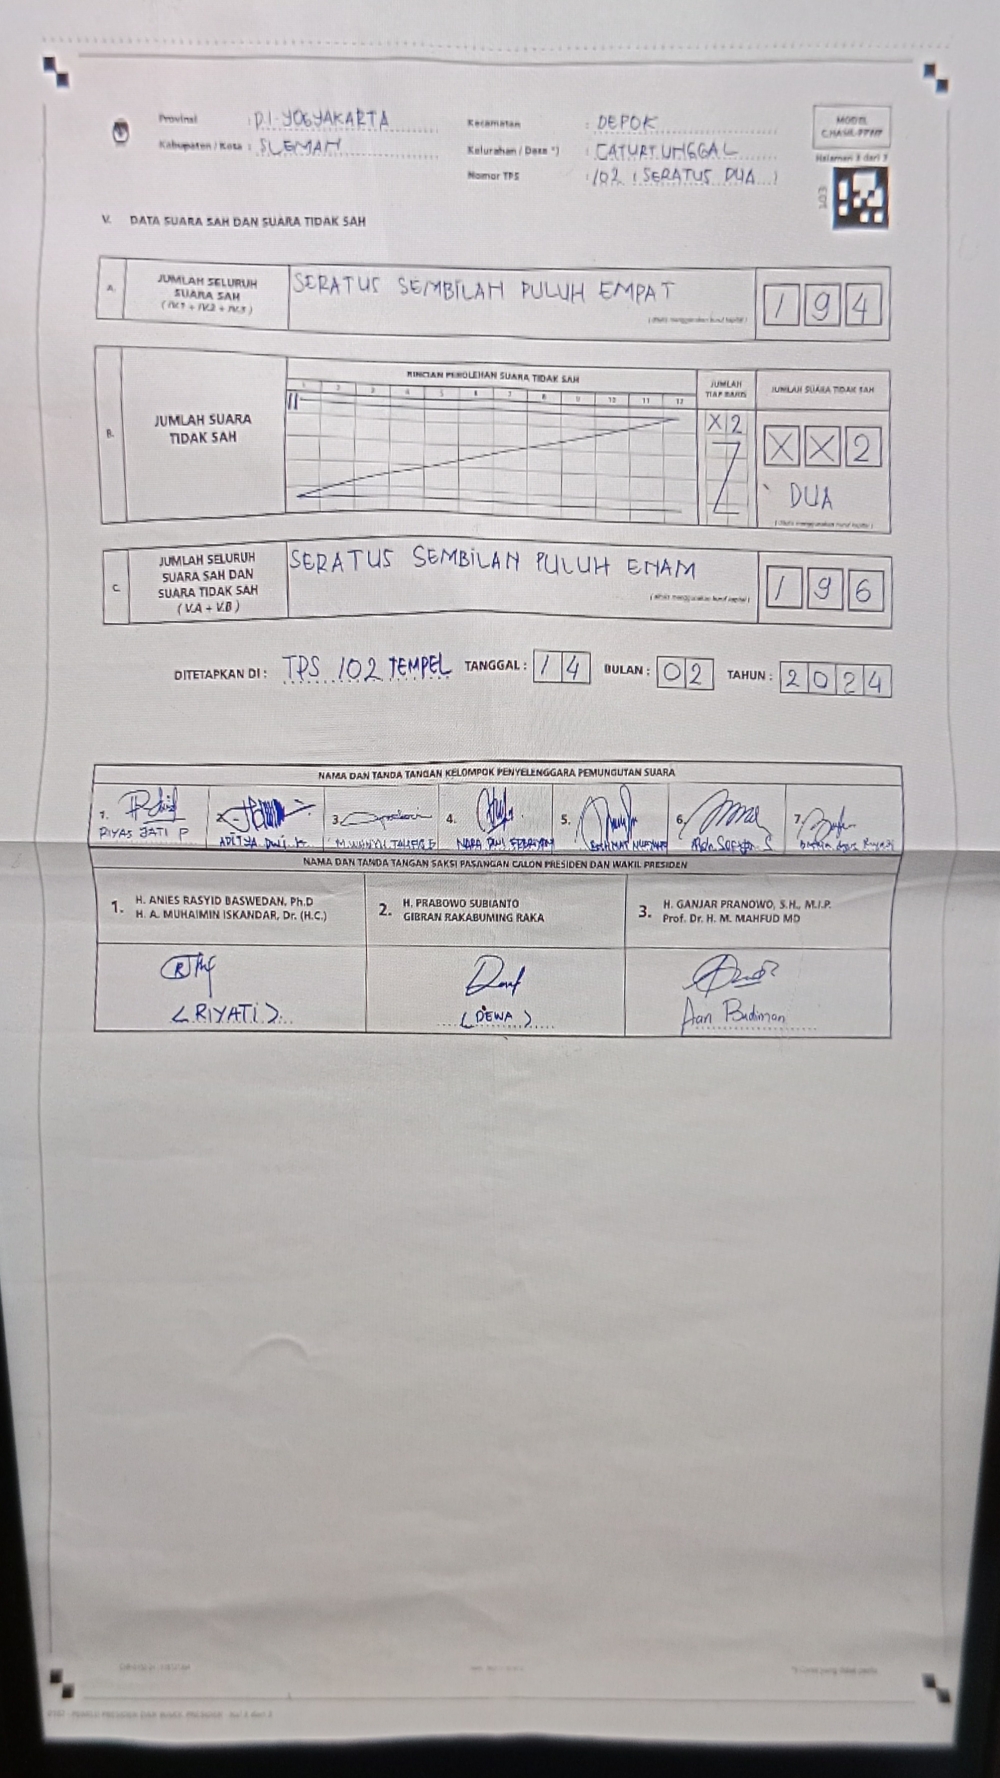 Provinsi : D.I. YOGYAKARTA
Kabupaten / Kota : SLEMAN
Kecamatan : DEPOK
Kelurahan / Desa *) : CATURTUNGGAL
Nomor TPS : 102 ( SERATUS DUA )
MODEL
C.HASIL-PPWP
Halaman 3 dari 3
103
V. DATA SUARA SAH DAN SUARA TIDAK SAH
A. JUMLAH SELURUH SUARA SAH (IV.1 + IV.2 + IV.3)
SERATUS SEMBILAH PULUH EMPAT
(ditulis menggunakan huruf kapital)
1 9 4
B. JUMLAH SUARA TIDAK SAH
RINCIAN PEROLEHAN SUARA TIDAK SAH
1 2 3 4 5 6 7 8 9 10 11 12
JUMLAH TIAP BARIS
X 2
JUMLAH SUARA TIDAK SAH
X X 2
DUA
(ditulis menggunakan huruf kapital)
C. JUMLAH SELURUH SUARA SAH DAN SUARA TIDAK SAH (V.A + V.B)
SERATUS SEMBILAN PULUH ENAM
(ditulis menggunakan huruf kapital)
1 9 6
DITETAPKAN DI : TPS 102 TEMPEL TANGGAL : 14 BULAN : 02 TAHUN : 2024
NAMA DAN TANDA TANGAN KELOMPOK PENYELENGGARA PEMUNGUTAN SUARA
1. 3. 4. 5. 6. 7.
RIYAS JATI P ADITYA DWI
NAMA DAN TANDA TANGAN SAKSI PASANGAN CALON PRESIDEN DAN WAKIL PRESIDEN
1. H. ANIES RASYID BASWEDAN, Ph.D
H. A. MUHAIMIN ISKANDAR, Dr. (H.C.)
2. H. PRABOWO SUBIANTO
GIBRAN RAKABUMING RAKA
3. H. GANJAR PRANOWO, S.H., M.I.P.
Prof. Dr. H. M. MAHFUD MD
(RIYATI)
(DEWA)
Aan Budiman